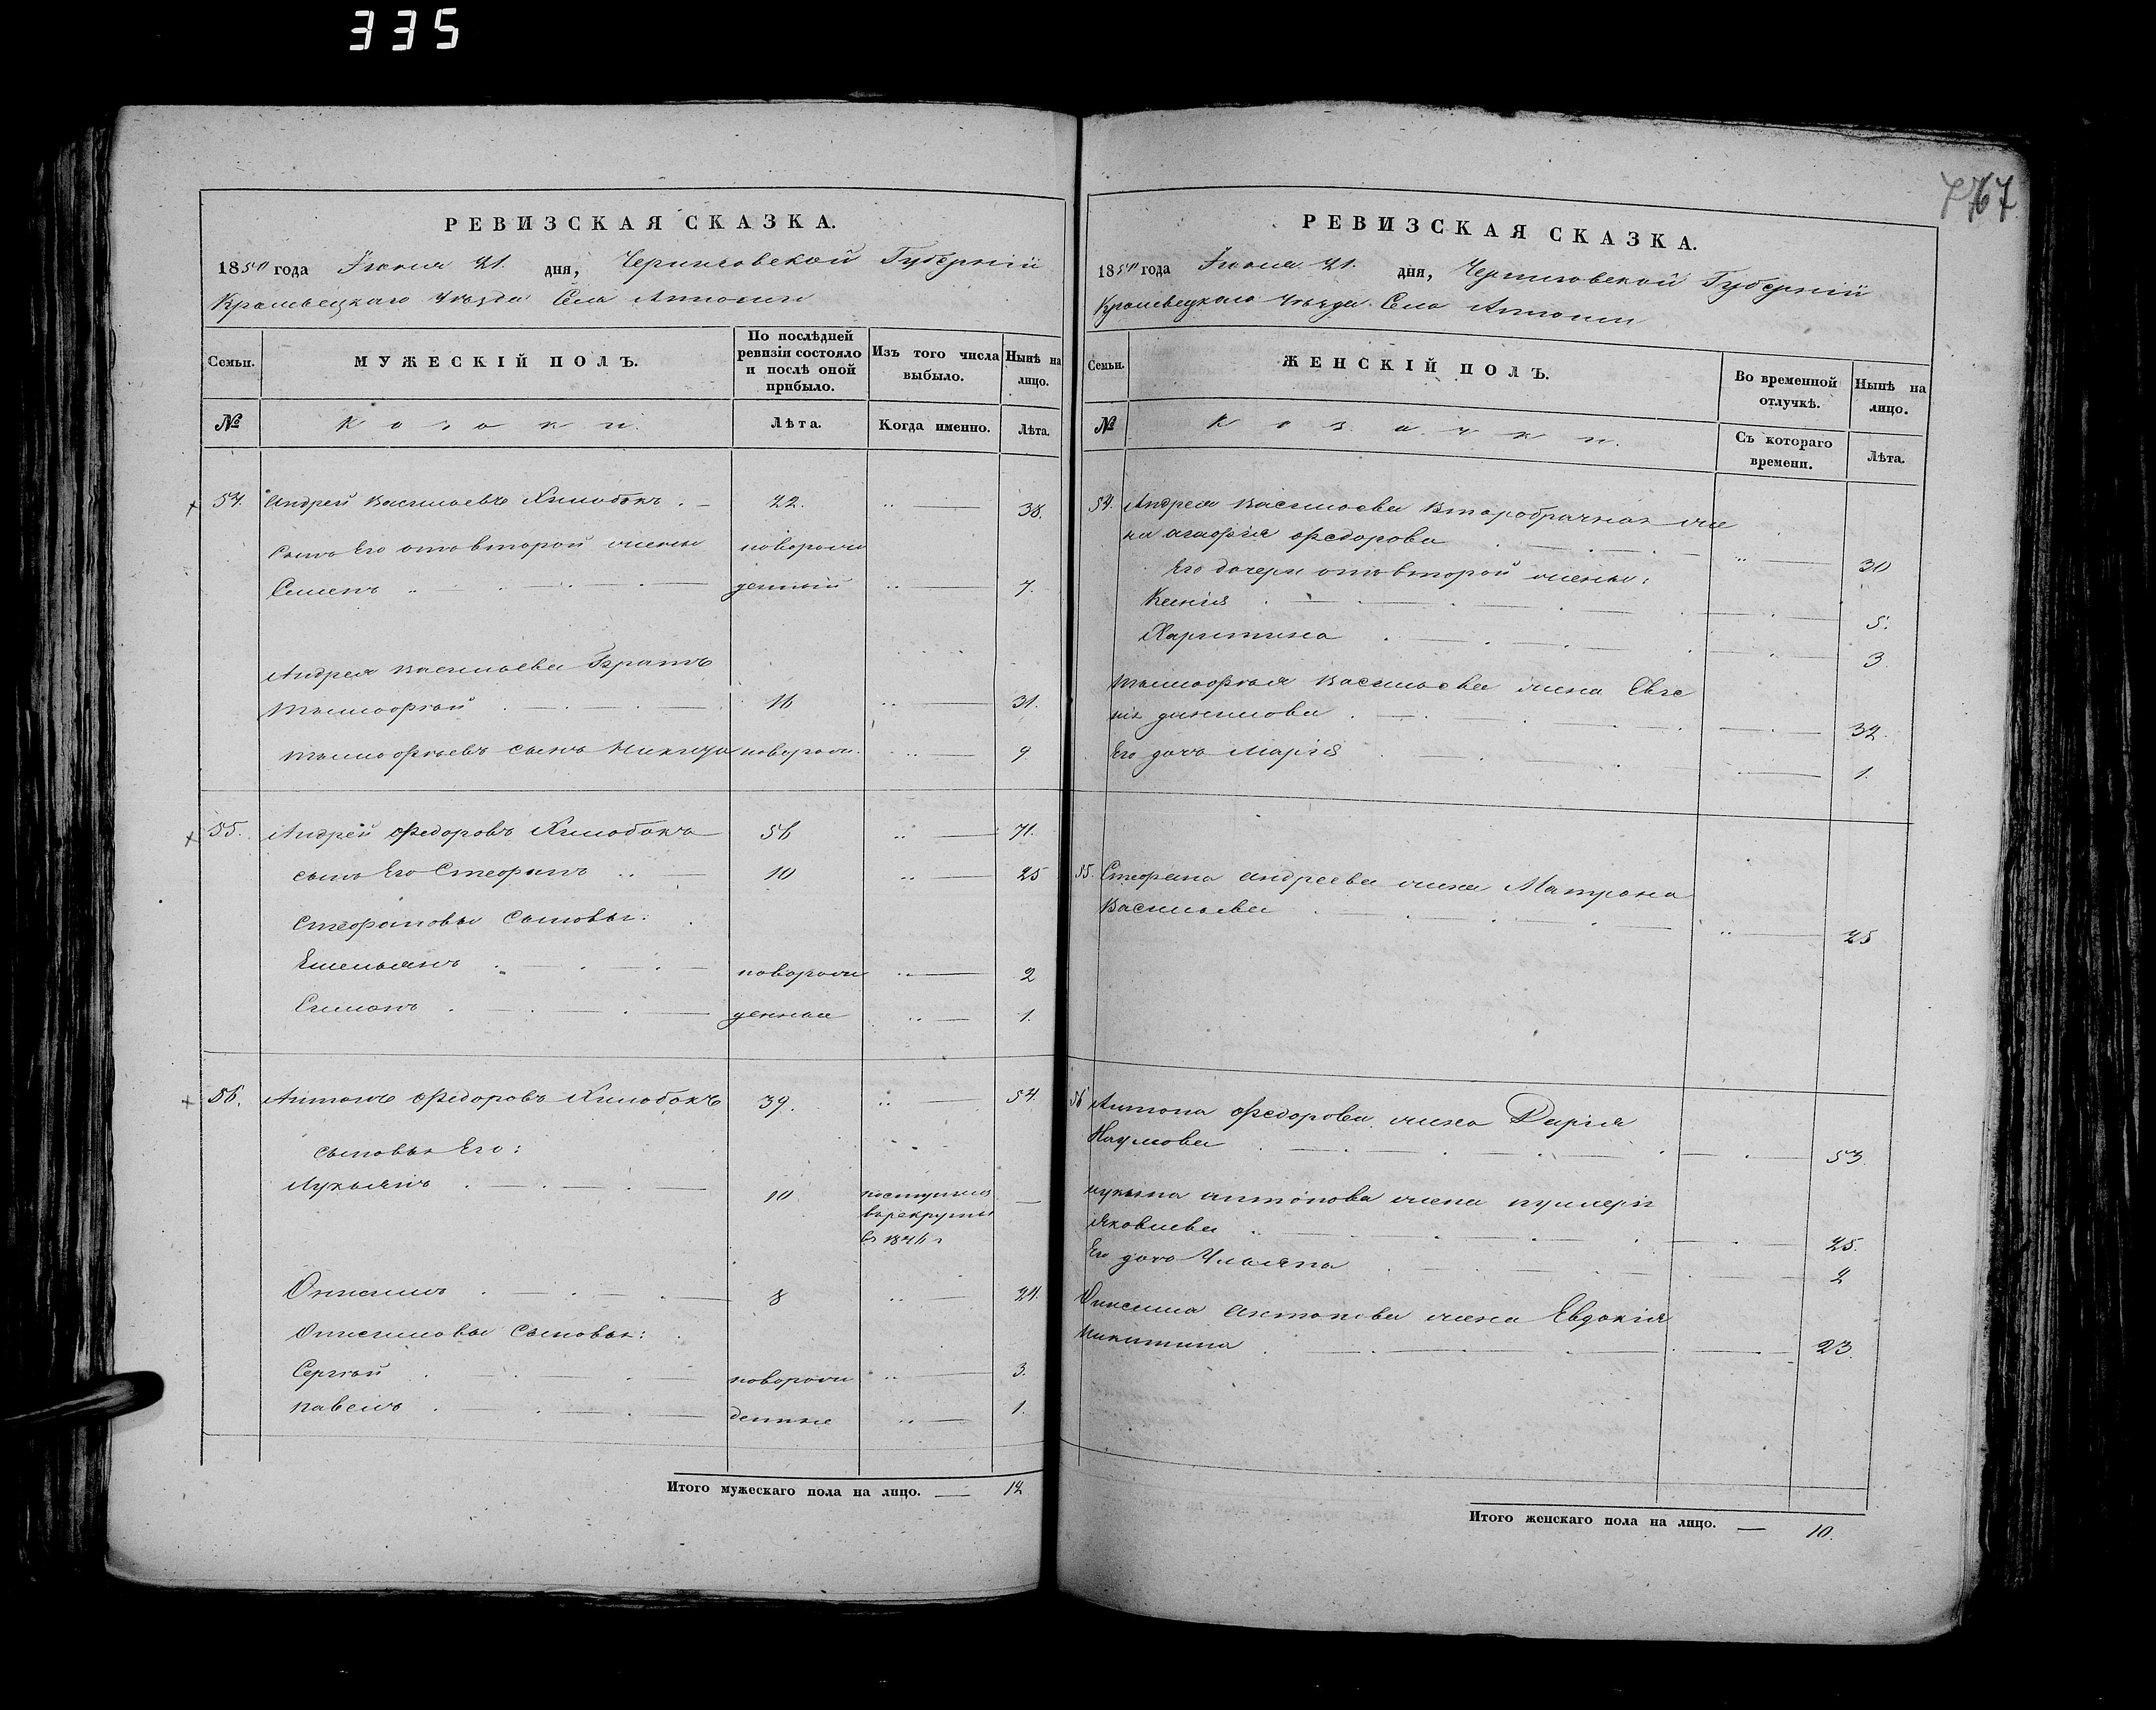 335
767
РЕВИЗСКАЯ СКАЗКА.
1850 года Іюня 21. дня, Черниговской Губерніи
Кролевецкаго Уѣзда Села
Семьи.
МУЖЕСКІЙ ПОЛЪ.
По послѣдней ревизіи состояло и послѣ оной прибыло.
Изъ того числа выбыло.
Нынѣ на лицо.
№
Козаки.
Лѣта.
Когда именно.
Лѣта.
54. Андрей Васильевъ Хилобокъ. 22. 38.
Сынъ Его отъ второй жены новорож
Семенъ денный 7.
Андрея Васильева Братъ
Тимофѣй 16 31.
Тимофѣевъ сынъ Никита новорож. 9
55. Андрей Федоровъ Хилобокъ 56 71.
сынъ Его Стефанъ 10 25
Стефановы Сыновья:
Емельянъ новорож 2
Симонъ денные 1.
56. Антонъ Федоровъ Хилобокъ 39. 54.
сыновья Его:
Лукьянъ 10 поступилъ
въ рекруты
въ 1846 г
Онисимъ 8 24.
Онисимовы Сыновья:
Сергѣй новорож 3.
Павелъ денные 1.
Итого мужескаго пола на лицо. 12
РЕВИЗСКАЯ СКАЗКА.
1850 года Іюня 21. дня, Черниговской Губерніи
Кролевецкаго Уѣзда Села
Семьи.
ЖЕНСКІЙ ПОЛЪ.
Во временной отлучкѣ.
Нынѣ на лицо.
№
Козачки.
Съ котораго времени.
Лѣта.
54. Андрея Васильева Второбрачная же
на Агафія Федорова 30
Его дочери отъ второй жены:
Ксенія 5.
Харитина 3
Тимофѣя Васильева жена Евге
нія Данилова 32.
Его дочь Марія 1.
55. Стефана Андреева жена Матрона
Васильева 25
56 Антона Федорова жена Дарія
Наумова 53
Лукьяна Антонова жена
Яковлева 25.
Его дочь Ульяна 2
Онисима Антонова жена Евдокія
Никитина 23.
Итого женскаго пола на лицо. 10.